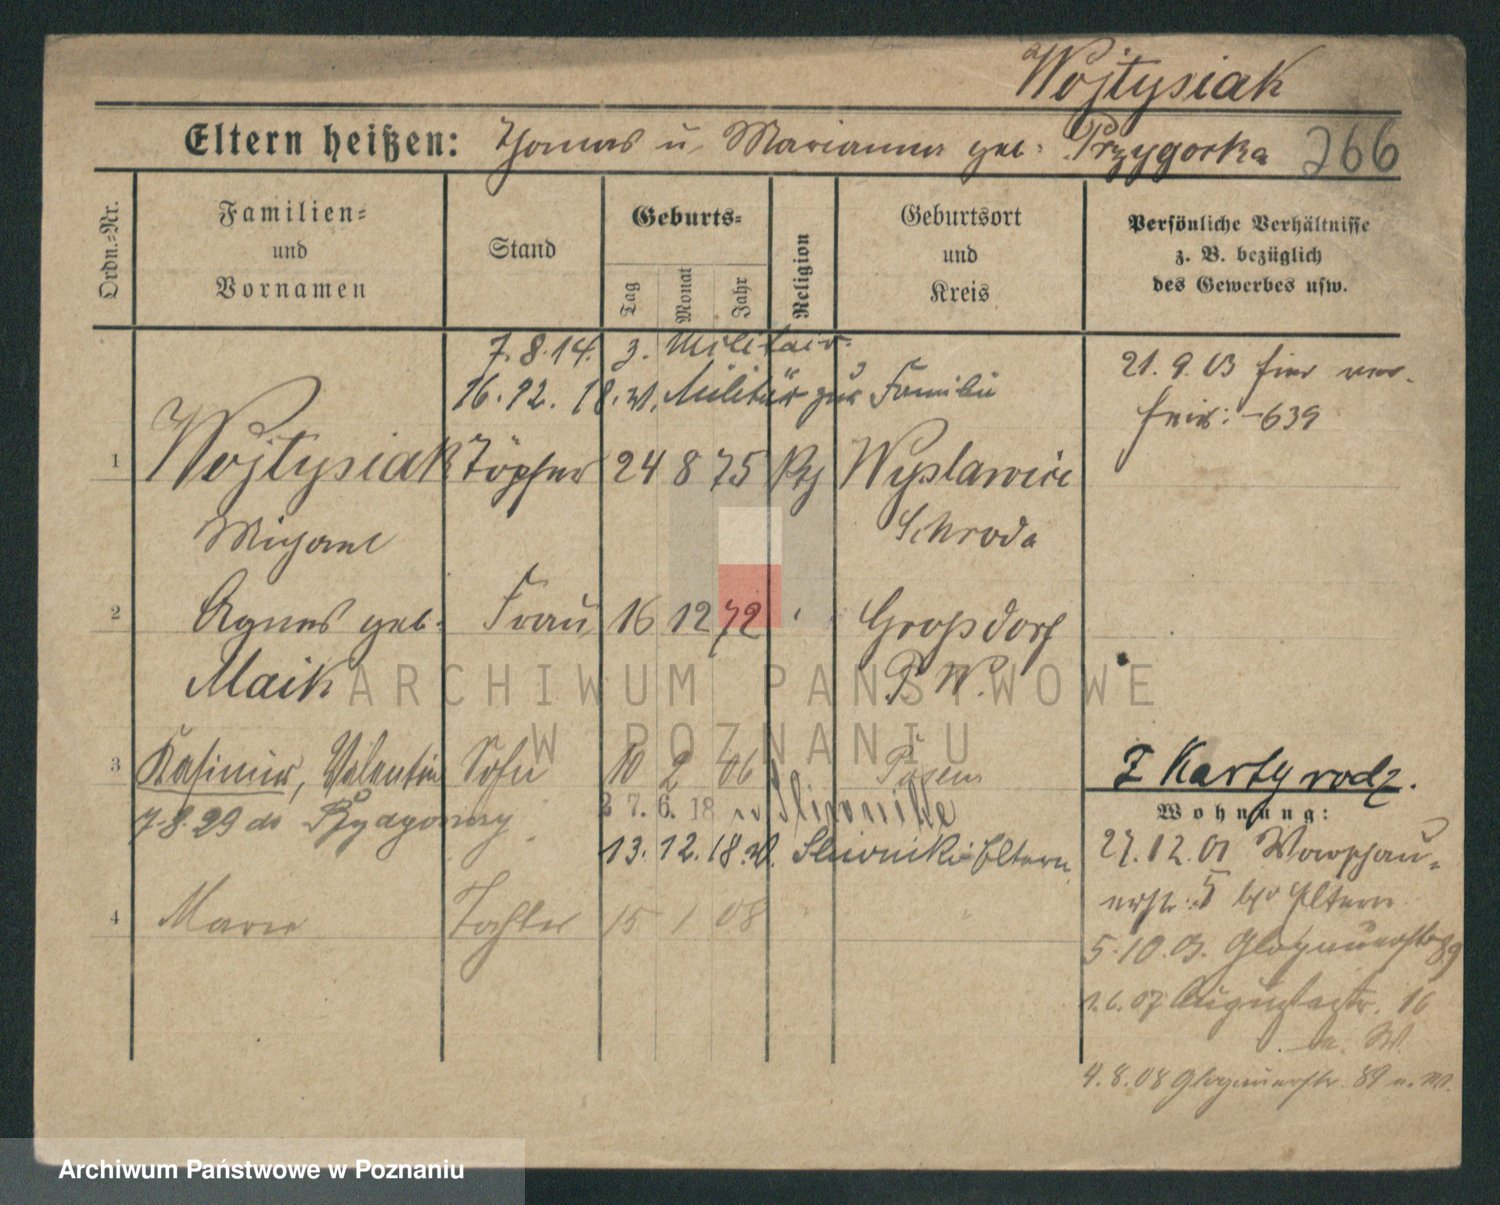 Wojtysiak
Eltern heißen: Thomas u. Marianna geb. Przygorka 266
Ordn.=Nr.
Familien=
und
Vornamen
Stand
Geburts=
Tag
Monat
Jahr
Religion
Geburtsort
und
Kreis
Persönliche Verhältnisse
z. B. bezüglich
des Gewerbes usw.
7.8.14. z. Militair
16.12.18. v. Militär zur Familie
21.9.03 hier
639
1 Wojtysiak Töpfer 24 8 75 Wyslawice
Michael Schroda
2 Agnes geb. Frau 16 12 72 Großdorf
Maik P. W.
3 Kasimir, Valentin Sohn 10 2 06 Posen
7.8.29 do Bydgoszcz
27.6.18 n Sliwniki
13.12.18. v. Sliwniki Eltern
4 Marie Tochter 15 1 08
Z Karty rodz.
Wohnung:
27.12.01 Warschau=
erstr. 5 b/ Eltern
5.10.03. Glogauerstr. 89
1.6.07 Augustastr. 16
a. W.
4.8.08 Glogauerstr. 89 a. W.
ARCHIWUM PAŃSTWOWE
W POZNANIU
Archiwum Państwowe w Poznaniu